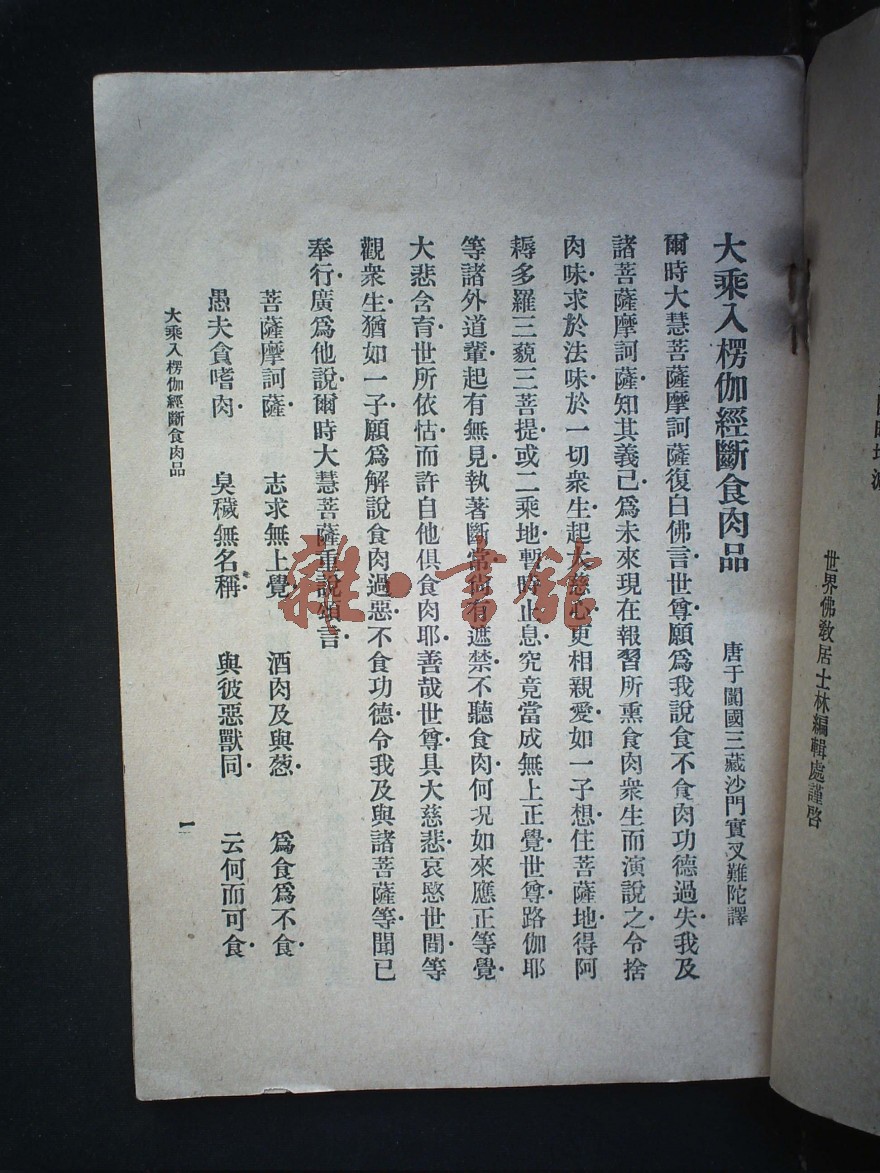 世界佛敎居士林編輯處謹啓
大乘入楞伽經斷食肉品
唐于闐國三藏沙門實叉難陀譯
爾時大慧菩薩摩訶薩復白佛言世尊願爲我說食不食肉功德過失我及
諸菩薩摩訶薩知其義已爲未來現在報習所熏食肉衆生而演說之令捨
肉味求於法味於一切衆生起大慈心更相親愛如一子想住菩薩地得阿
耨多羅三藐三菩提或二乘地暫時止息究竟當成無上正覺世尊路伽耶
等諸外道輩起有無見執著斷常尚有遮禁不聽食肉何況如來應正等覺
大悲含育世所依怙而許自他俱食肉耶善哉世尊具大慈悲哀愍世間等
觀衆生猶如一子願爲解說食肉過惡不食功德令我及與諸菩薩等聞已
奉行廣爲他說爾時大慧菩薩重說頌言
菩薩摩訶薩 志求無上覺 酒肉及與葱 爲食爲不食
愚夫貪嗜肉 臭穢無名稱 與彼惡獸同 云何而可食
大乘入楞伽經斷食肉品
一
雜·書館